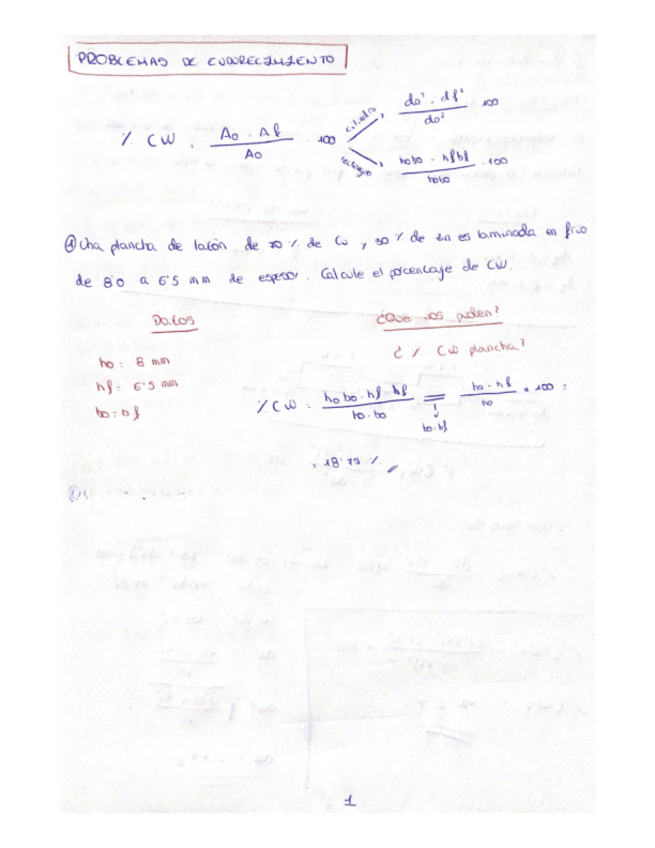 PROBLEMAS DE ENDURECIMIENTO
% CW = (A₀ - Af) / A₀ · 100
cilindro → (d₀² - df²) / d₀² · 100
rectángulo → (h₀b₀ - hfbf) / h₀b₀ · 100
① Una plancha de latón de 70 % de Cu y 30 % de Zn es laminada en frío
de 8'0 a 6'5 mm de espesor. Calcule el porcentaje de CW.
Datos
¿Qué nos piden?
¿ % CW plancha?
h₀ = 8 mm
hf = 6'5 mm
b₀ = bf
% CW = (h₀b₀ - hf · bf) / (h₀ · b₀) = (h₀ - hf) / h₀ · 100 =
b₀ = bf
= 18'75 %
1